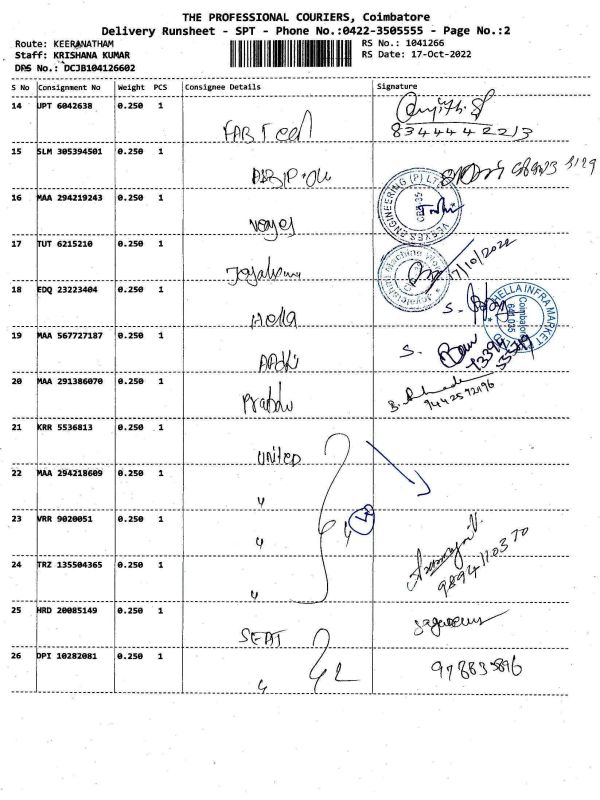 THE PROFESSIONAL COURIERS, Coimbatore
Delivery Runsheet - SPT - Phone No.:0422-3505555 - Page No.:2
Route: KEERANATHAM
RS No.: 1041266
Staff: KRISHANA KUMAR
RS Date: 17-Oct-2022
DRS No.: DCJB104126602
S No Consignment No Weight PCS Consignee Details Signature
14 UPT 6042638 0.250 1
FAB Tech
8344442213
15 SLM 305394501 0.250 1
16 MAA 294219243 0.250 1
ENGINEERING (P) LTD
17 TUT 6215210 0.250 1
17/10/2022
18 EDQ 23223404 0.250 1
Hella
S.
HELLA INFRA MARKET
Coimbatore
641 035
19 MAA 567727187 0.250 1
S. Ram
20 MAA 291386070 0.250 1
Prabhu
9442592196
21 KRR 5536813 0.250 1
UNITED
22 MAA 294218609 0.250 1
"
23 VRR 9020051 0.250 1
"
24 TRZ 135504365 0.250 1
"
9894110370
25 HRD 20085149 0.250 1
SEAT
26 DPI 10282081 0.250 1
"